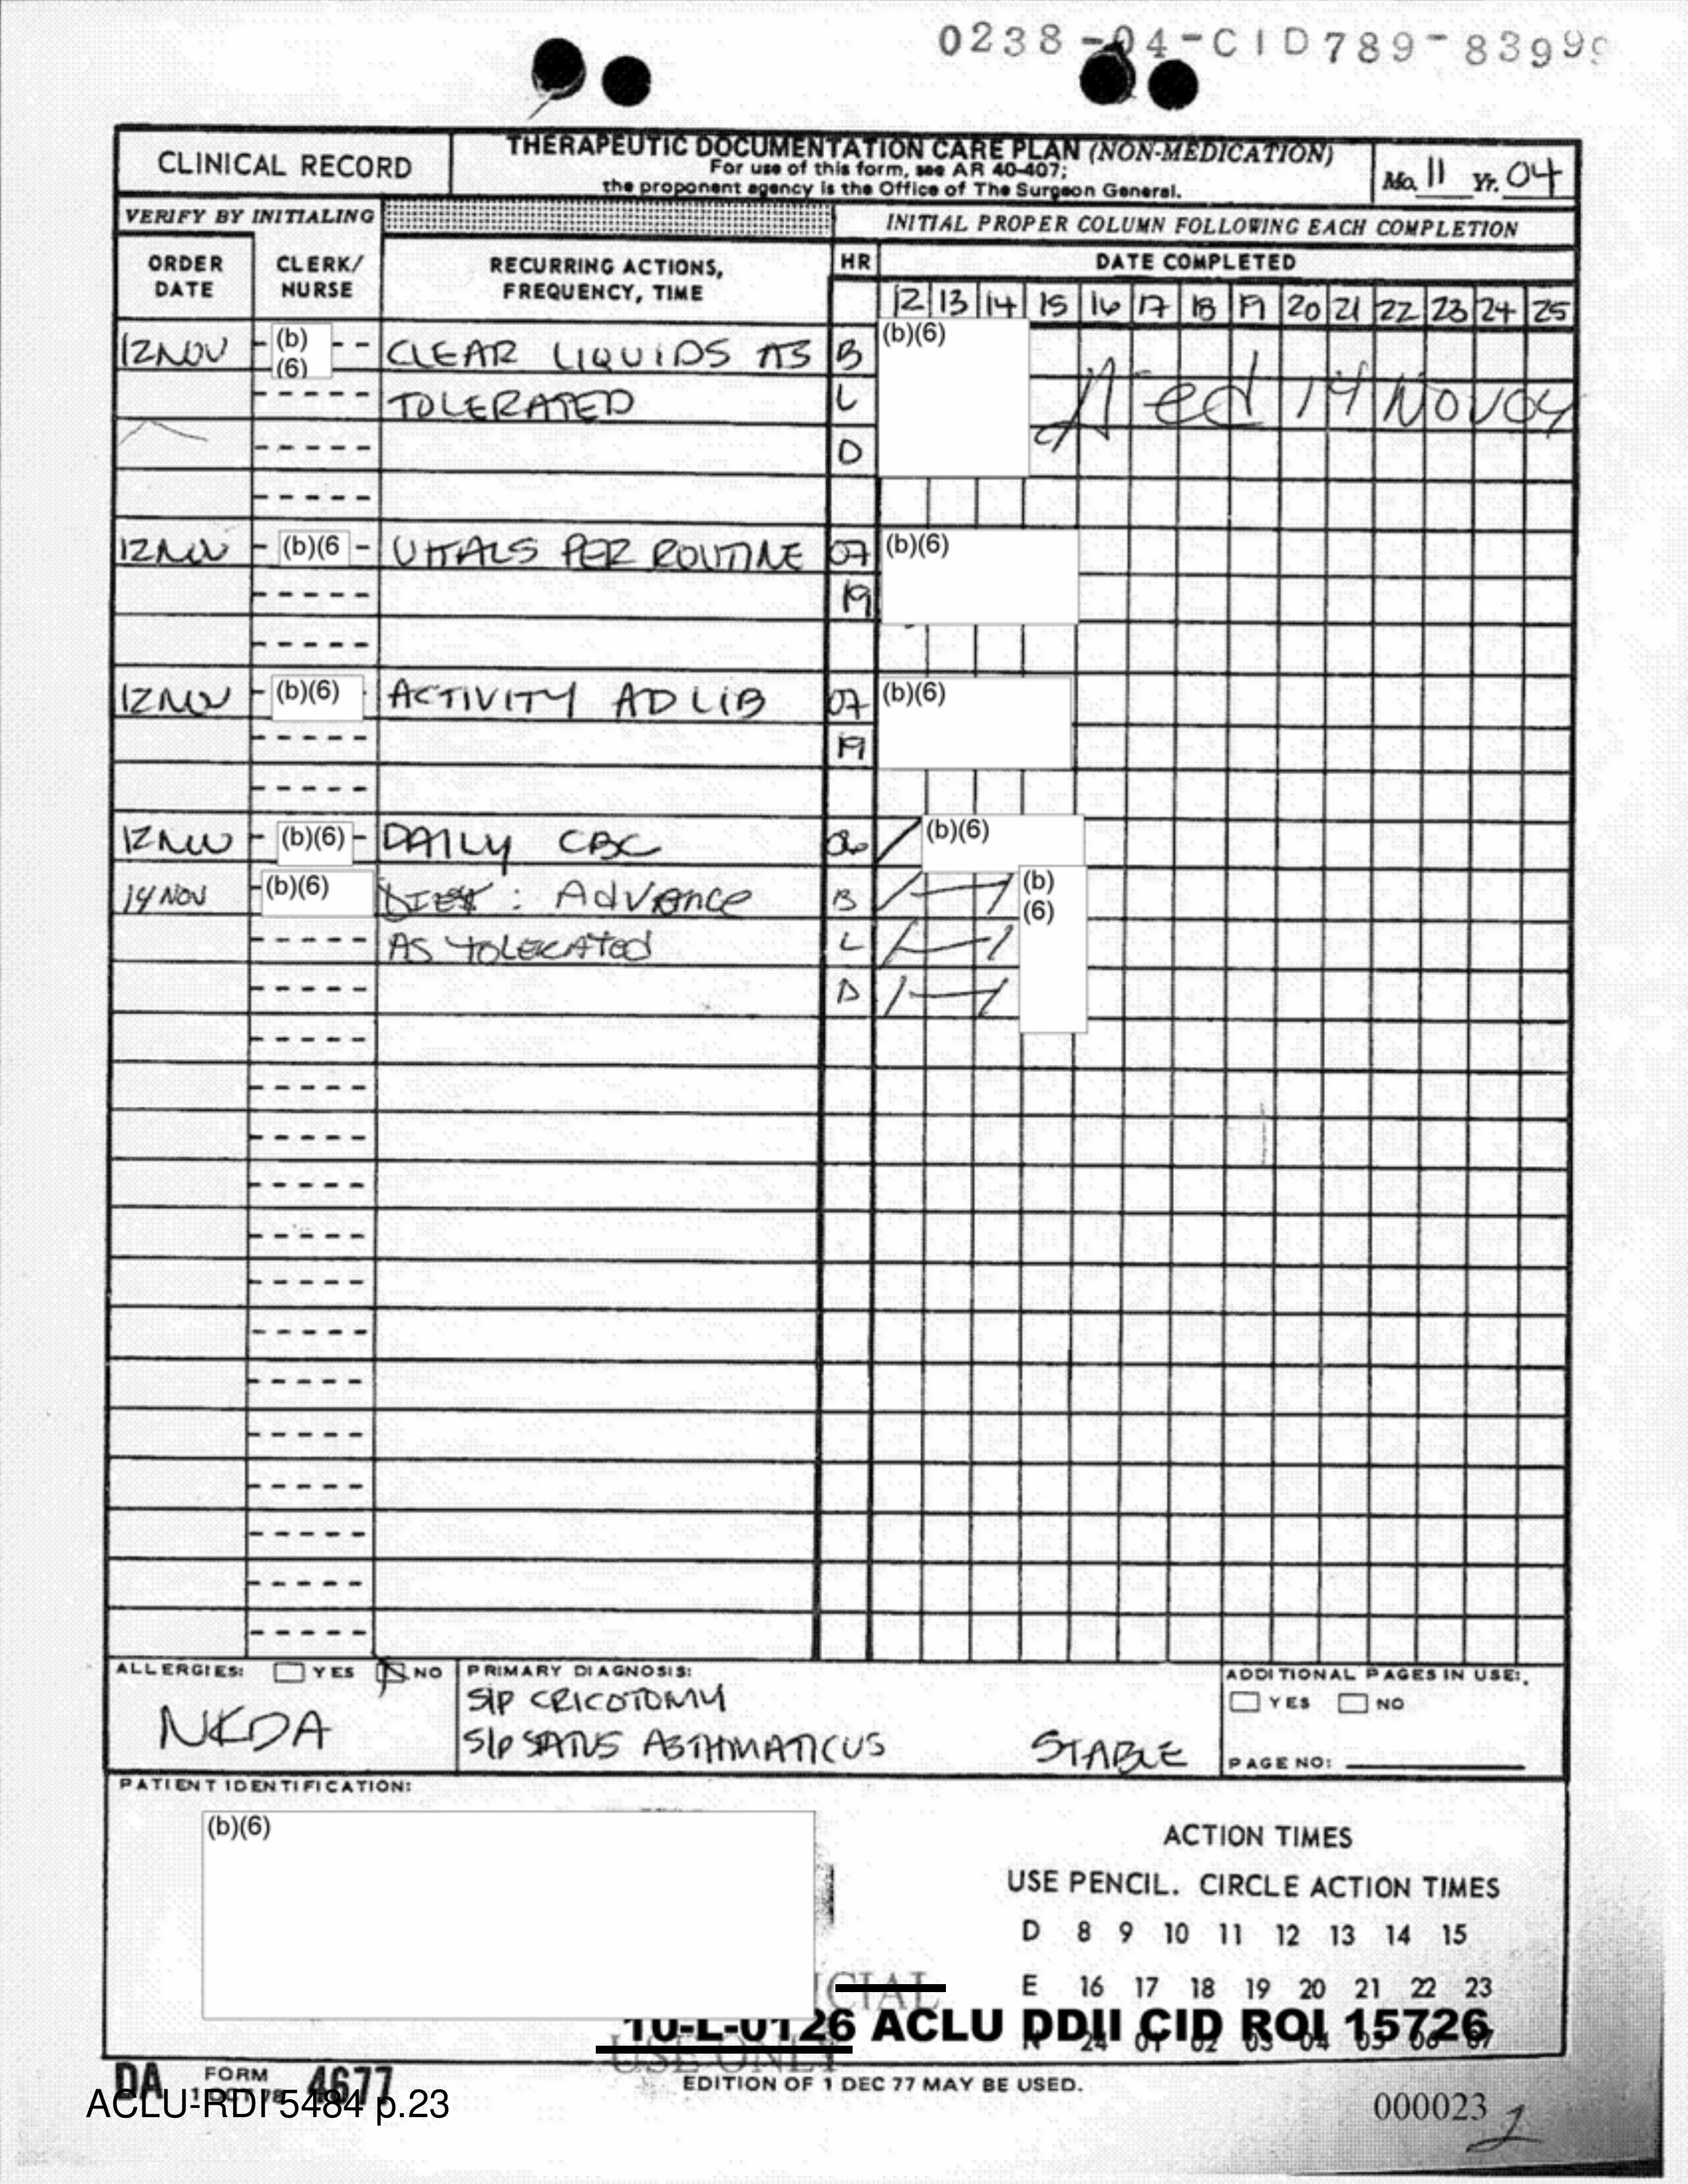 0238-04-CID789-8399
CLINICAL RECORD
THERAPEUTIC DOCUMENTATION CARE PLAN (NON-MEDICATION)
For use of this form, see AR 40-407;
the proponent agency is the Office of The Surgeon General.
Mo. 11 Yr. 04
VERIFY BY INITIALING
INITIAL PROPER COLUMN FOLLOWING EACH COMPLETION
ORDER DATE
CLERK/ NURSE
RECURRING ACTIONS, FREQUENCY, TIME
HR
DATE COMPLETED
12 13 14 15 16 17 18 19 20 21 22 23 24 25
12NOV (b)(6) CLEAR LIQUIDS AS B (b)(6)
TOLERATED L 14 NOV 04
D
12NOV (b)(6 VITALS PER ROUTINE 07 (b)(6)
19
12NOV (b)(6) ACTIVITY AD LIB 07 (b)(6)
19
12NOV (b)(6) DAILY CBC 06 (b)(6)
14 NOV (b)(6) DIET: Advance B (b)(6)
AS TOLERATED L
D
ALLERGIES: YES NO
NKDA
PRIMARY DIAGNOSIS:
S/P CRICOTOMY
S/P SATUS ASTHMATICUS STABLE
ADDITIONAL PAGES IN USE:
YES NO
PAGE NO:
PATIENT IDENTIFICATION:
(b)(6)
ACTION TIMES
USE PENCIL. CIRCLE ACTION TIMES
D 8 9 10 11 12 13 14 15
E 16 17 18 19 20 21 22 23
N 24 01 02 03 04 05 06 07
CIAL
USE ONLY
10-L-0126 ACLU DDII CID ROI 15726
DA FORM 4677
1 OCT 78
EDITION OF 1 DEC 77 MAY BE USED.
ACLU-RDI 5484 p.23
000023
2